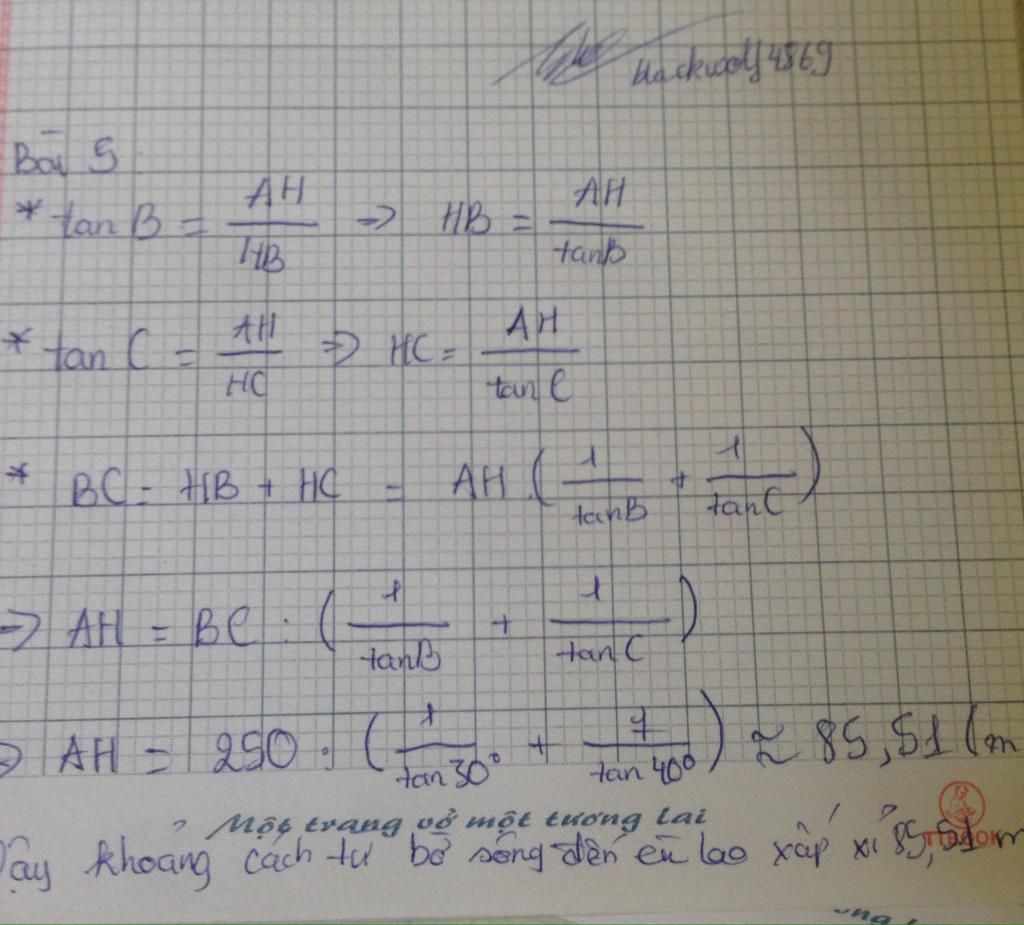 blackwolf4869
Bài 5:
* tanB = AH/HB => HB = AH/tanB
* tan C = AH/HC => HC = AH/tan C
* BC = HB + HC = AH.(1/tanB + 1/tanC)
=> AH = BC : (1/tanB + 1/tanC)
=> AH = 250 : (1/tan30° + 1/tan40°) ≈ 85,51 (m
Một trang vở một tương lai
Vậy khoảng cách từ bờ sông đến cù lao xấp xỉ 85,51 m